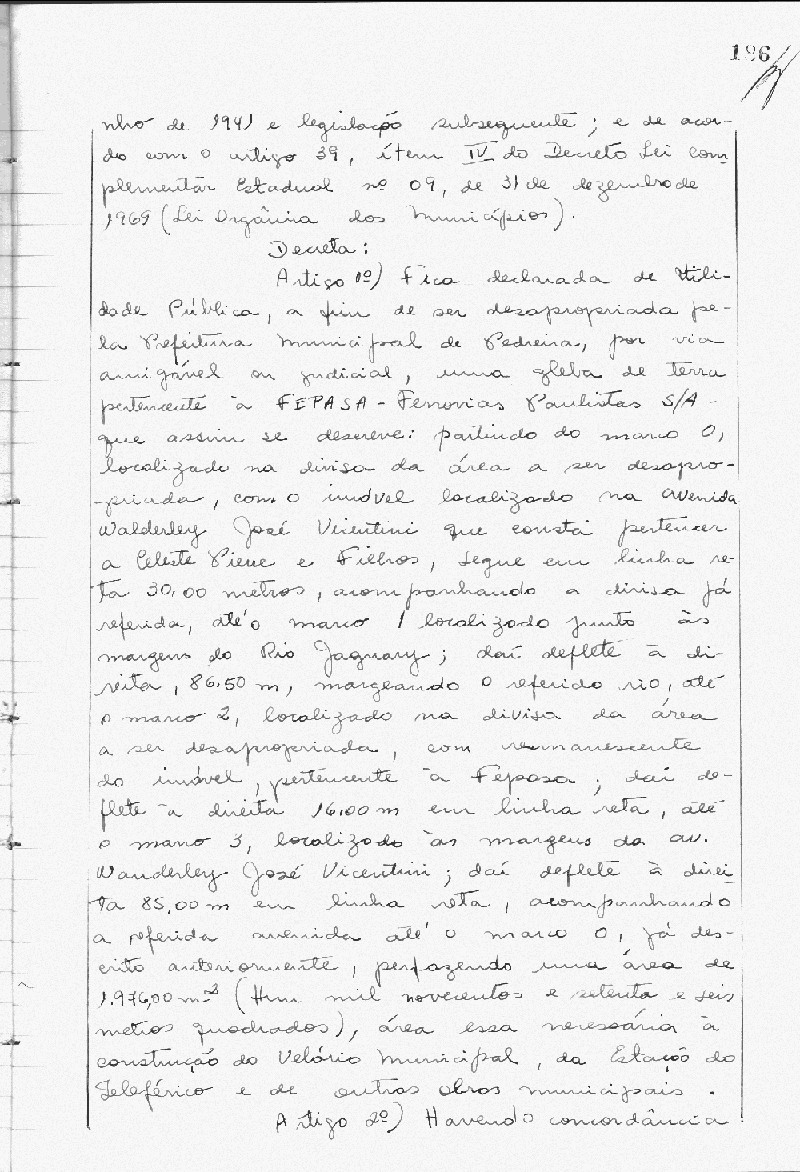 196
nho de 1941 e legislação subsequente; e de acor-
do com o artigo 39, ítem IV do Decreto Lei Com-
plementar Estadual nº 09, de 31 de dezembro de
1969 (Lei Orgânica dos Municípios).
Decreta:
Artigo 1º) Fica declarada de Utili-
dade Pública, a fim de ser desapropriada pe-
la Prefeitura Municipal de Pedreira, por via
amigável ou judicial, uma gleba de terra
pertencente à FEPASA - Ferrovias Paulistas S/A -
que assim se descreve: partindo do marco 0,
localizado na divisa da área a ser desapro-
-priada, com o imóvel localizado na avenida
Walderley José Vicentini que consta pertencer
a Celeste Piene e Filhos, segue em linha re-
ta 30,00 metros, acompanhando a divisa já
referida, até o marco 1 localizado junto às
margens do Rio Jaguary; daí deflete à di-
reita, 86,50 m, margeando o referido rio, até
o marco 2, localizado na divisa da área
a ser desapropriada, com remanescente
do imóvel, pertencente à Fepasa; daí de-
flete à direita 16,00 m em linha reta, até
o marco 3, localizado às margens da av.
Wanderley José Vicentini; daí deflete à direi-
ta 85,00 m em linha reta, acompanhando
a referida avenida até o marco 0, já des-
crito anteriormente, perfazendo uma área de
1.976,00 m² (Hum mil novecentos e setenta e seis
metros quadrados), área essa necessária à
construção do Velório Municipal, da Estação do
Teleférico e de outras obras municipais.
Artigo 2º) Havendo concordância